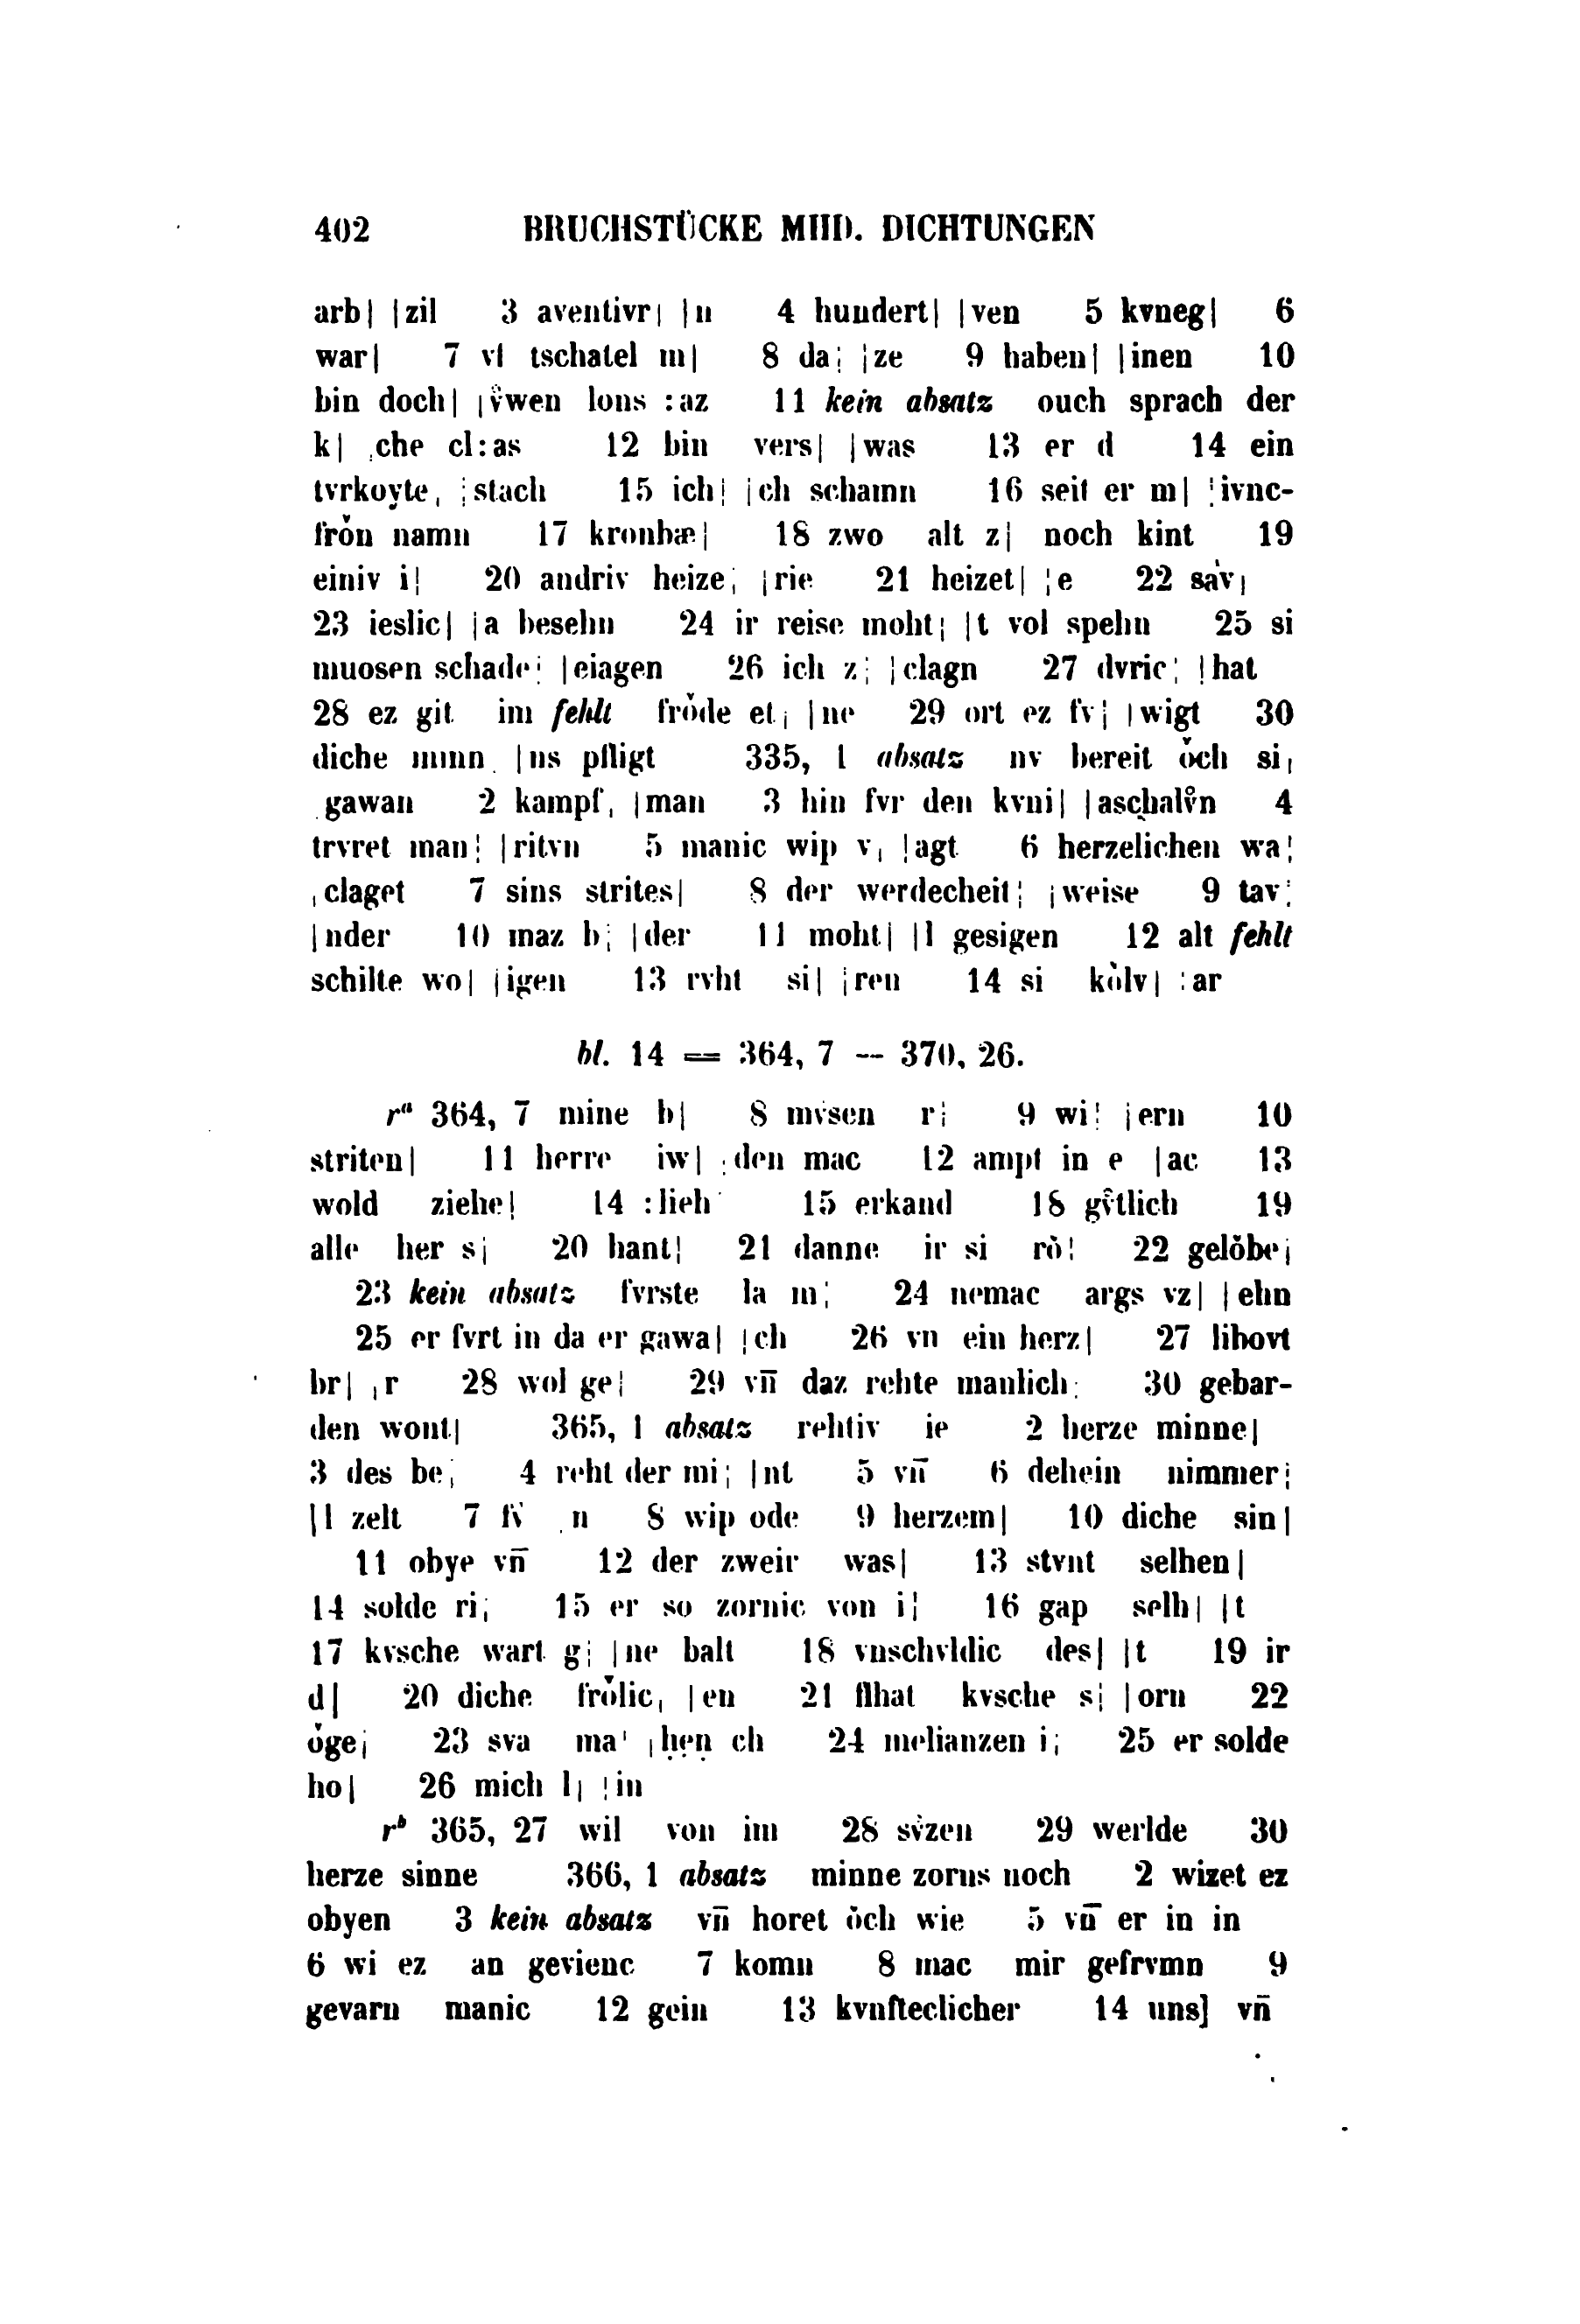 402 BRUCHSTÜCKE MHD. DICHTUNGEN
arb| |zil 3 aventivr| |n 4 hundert| |ven 5 kvneg| 6
war| 7 vf tschatel m| 8 da¦ ¦ze 9 haben| |inen 10
bin doch| |v̊wen lons :az 11 kein absatz ouch sprach der
k| che cl:as 12 bin vers| |was 13 er d 14 ein
tvrkoyte, ¦stach 15 ich¦ ¦ch schamn 16 seit er m| ¦ivnc-
frǒn namn 17 kronbæ| 18 zwo alt z| noch kint 19
einiv i¦ 20 andriv heize¦ |rie 21 heizet| ¦e 22 sa'v|
23 ieslic| |a besehn 24 ir reise moht¦ |t vol spehn 25 si
muosen schade¦ |eiagen 26 ich z¦ ¦clagn 27 dvric¦ ¦hat
28 ez git im fehlt frǒde et¦ |ne 29 ort ez fv¦ |wigt 30
diche minn |ns pfligt 335, 1 absatz nv bereit ǒch si|
gawan 2 kampf, |man 3 hin fvr den kvni| |aschalv̊n 4
trvret man¦ |ritvn 5 manic wip v| ¦agt 6 herzelichen wa¦
|claget 7 sins strites| 8 der werdecheit¦ ¦weise 9 tav¦
|nder 10 maz b¦ |der 11 moht| |l gesigen 12 alt fehlt
schilte wo| |igen 13 rvht si| ¦ren 14 si kòlv| :ar
bl. 14 = 364, 7 — 370, 26.
rᵃ 364, 7 mine b| 8 mvsen r¦ 9 wi¦ |ern 10
striten| 11 herre iw| :den mac 12 ampt in e |ac 13
wold ziehe¦ 14 :lieh 15 erkand 18 gv̊tlich 19
alle her s¦ 20 hant¦ 21 danne ir si rò¦ 22 gelǒbe¦
23 kein absatz fvrste la m¦ 24 nemac args vz| |ehn
25 er fvrt in da er gawa| ¦ch 26 vn ein herz| 27 libovt
br| |r 28 wol ge¦ 29 vn̄ daz rehte manlich: 30 gebar-
den wont| 365, 1 absatz rehtiv ie 2 herze minne|
3 des be¦ 4 reht der mi¦ |nt 5 vn̄ 6 dehein nimmer¦
|l zelt 7 fv̇ n 8 wip ode 9 herzem| 10 diche sin|
11 obye vn̄ 12 der zweir was| 13 stvnt selhen|
14 solde ri¦ 15 er so zornic von i¦ 16 gap selh| |t
17 kvsche wart g¦ |ne balt 18 vnschvldic des| |t 19 ir
d| 20 diche frǒlic, |en 21 flhat kvsche s¦ |orn 22
ǒge¦ 23 sva ma' |ḥẹṇ ch 24 melianzen i¦ 25 er solde
ho| 26 mich l| ¦in
rᵇ 365, 27 wil von im 28 sv̇zen 29 werlde 30
herze sinne 366, 1 absatz minne zorns noch 2 wizet ez
obyen 3 kein absatz vn̄ horet òch wie 5 vn̄ er in in
6 wi ez an gevienc 7 komn 8 mac mir gefrvmn 9
gevarn manic 12 gein 13 kvnſteclicher 14 uns] vn̄